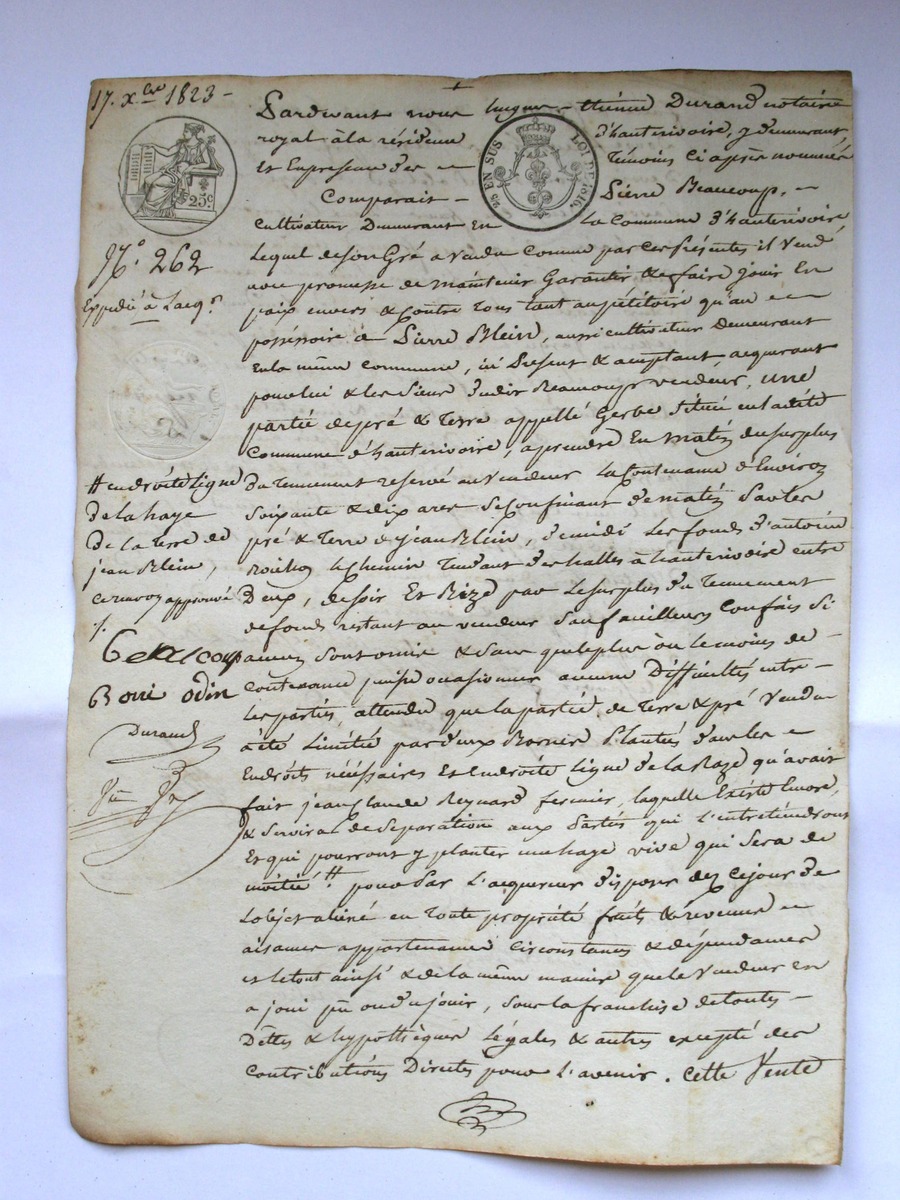 17. xbre 1823 -
25c
25 EN SUS LOI DE 1816.
N.o 262
Expédié à l'acqr.
Pardevant nous hugue - thiéne Durand notaire
royal à la résidence d'hauterivoire, y demeurant
Et Enpresence des témoins ci après nommés
Comparait - Pierre Beaucoup. -
Cultivateur Demeurant En la Commune d'hauterivoire
Lequel deson Gré a vendu Comme par Ces présentes il Vend
avec promesse de maintenir Garantir & faire jouir En
paix envers & Contre tous tant au pétitoire qu'au
possessoire à Pierre Blein, aussi cultivateur demeurant
Enla même Commune, ici présent & acceptant, acquerant
pour lui & les siens dudit Beaucoup vendeur, une
partie depré & terre appellé Gerbe située enladite
Commune d'hauterivoire, aprendre En matin du surplus
Du tennement reservé au vendeur la Contenance d'Environ
Soixante & dix ares Se Confinant de matin par les
pré & terre de jean Blein, de midi les fonds d'antoine
le chemin tendant des halles à hauterivoire entre
Deux, de soir Et Bize par Lesurplus du tennement
de fonds restant au vendeur Sauf meilleurs Confins Si
aucuns Sont omis & Sans que le plus ou le moins de
Contenance puisse occasionner aucune Difficultés entre
Les parties, attendu que la partie de terre & pré Vendu
à été Limitée par deux Bornes Plantées dans les
Endroits nécéssaires Et en droite Ligne de la Raze qu'avait
fait jean Claude Reynard fermier, laquelle Existe Encore,
& Servira de Separation aux Parties qui L'entretiendront
Et qui pourront y planter une haye vive qui Sera de
moitié # pour Par L'acquereur disposer dez Cejour de
Lobjet aliéné en toute propriété fruits & revenus
aisances appartenances Circonstances & dépendances
et letout ainsi & de la même maniere que le Vendeur en
a joui pu ou du jouir, Sous la franchise de toutes
Dettes & hypothèques Légales & autres excepté des
Contributions Directes pour L'avenir. Cette Vente
# en droite ligne
de la haye
de la terre de
jean Blein,
ce renvoy approuvé
Beaucoup
odin
Durand